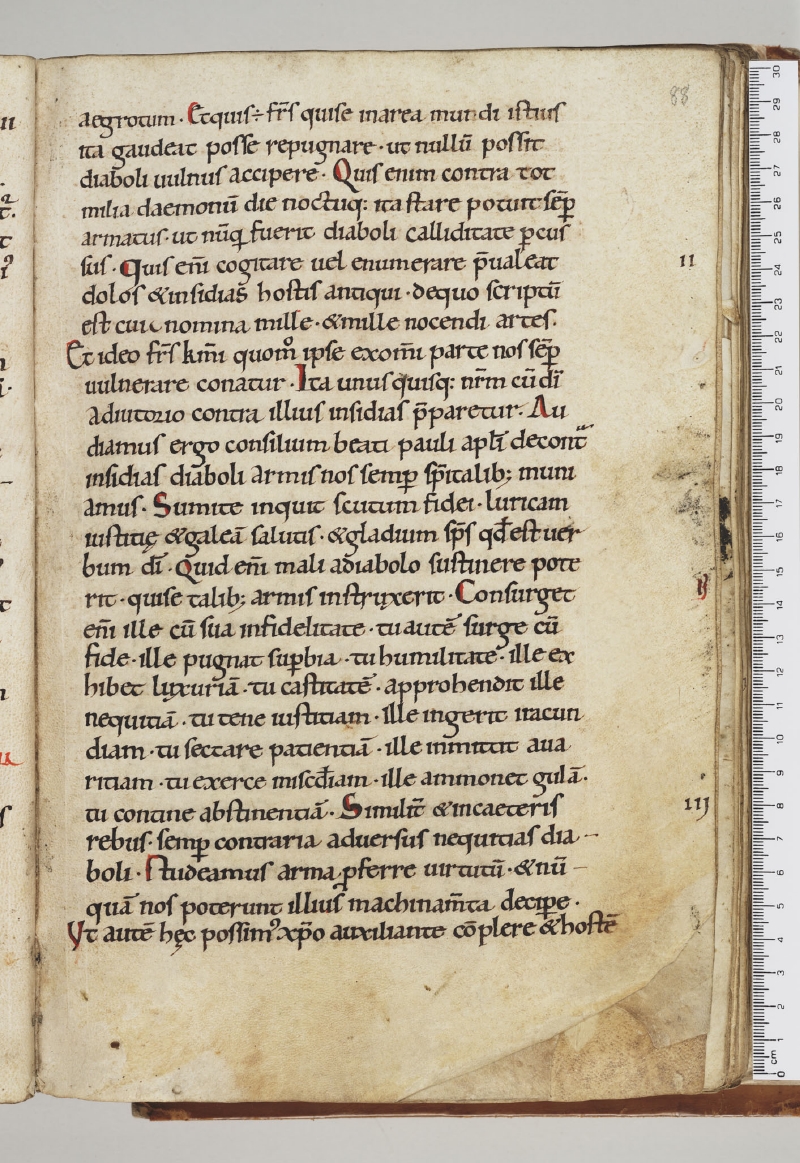 88
aegrotum · Et quis ÷ fr̄s qui se in area mundi istius
ita gaudeat posse repugnare · ut nullū possit
diaboli uulnus accipere · Quis enim contra tot
milia daemoniū die noctuq; ita stare potuit sēp
armatus · ut nūq̄ fuerit diaboli calliditate ꝑcus
sus · Quis eni̅ cogitare uel enumerare p̄ualeat
dolos & insidias hostis antiqui · de quo scriptū
est cui nomina mille · & mille nocendi artes.
Et ideo fr̄s km̄i quom̊ ipse ex om̄i parte nos sēp
uulnerare conatur · Ita unus quisq; nr̄m cū dī
adiutorio contra illius insidias p̄paretur · Au
diamus ergo consilium beati pauli apłi de cont̄
insidias diaboli armis nos semꝑ sp̄italib; muni
amus · Sumite inquit scutum fidei · luricam
iustitię & galeā salutis · & gladium sp̄s qđ est uer
bum dī · Quid eni̅ mali a diabolo sustinere pote
rit · qui se talib; armis instruxerit · Consurget
eni̅ ille cū sua infidelitate · tu autē surge cū
fide · ille pugnat suꝑbia · tu humilitate · ille ex
hibet luxuriā · tu castitatē · approhendit ille
nequitiā · tu tene iustitiam · ille ingerit iracun
diam · tu sectare patientiā · ille inmittit aua
ritiam · tu exerce misc̄diam · ille ammonet gulā ·
tu contine abstinentiā · Similit̄ & in caeteris
rebus · semꝑ contraria aduersus nequitias dia
boli · studeamus arma ꝓferre uirtutū · & nū
quā nos poterunt illius machinam̄ta decipe ·
Ut autē hęc possim᾿ xp̄o auxiliante cōplere & hostē
II
IJ
IIJ